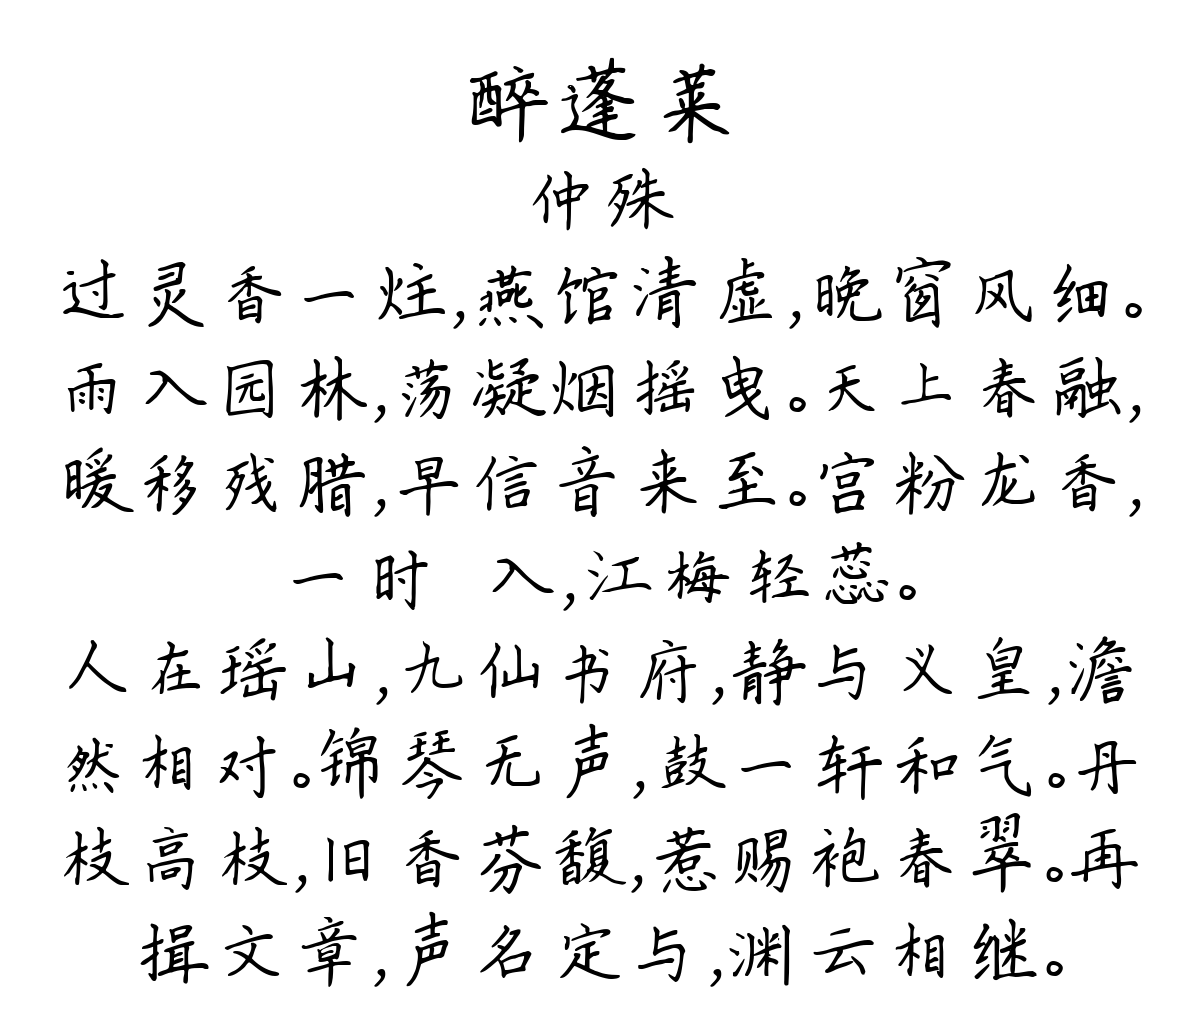 醉蓬莱
仲殊
过灵香一炷,燕馆清虚,晚窗风细。
雨入园林,荡凝烟摇曳。天上春融,
暖移残腊,早信音来至。宫粉龙香,
一时 入,江梅轻蕊。
人在瑶山,九仙书府,静与义皇,澹
然相对。锦琴无声,鼓一轩和气。丹
枝高枝,旧香芬馥,惹赐袍春翠。再
揖文章,声名定与,渊云相继。